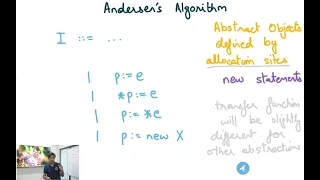 Andersen's Algorithm
I ::= ...
| p := e
| *p := e
| p := *e
| p := new X
Abstract Objects
defined by
allocation sites
new statements
transfer function
will be slightly
different for
other abstractions